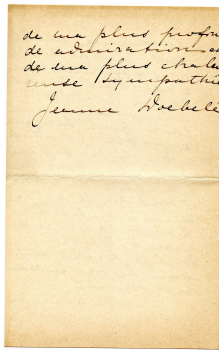 de ma plus profon
de admiration et
de ma plus chaleu
reuse sympathie
Jeanne Doebele